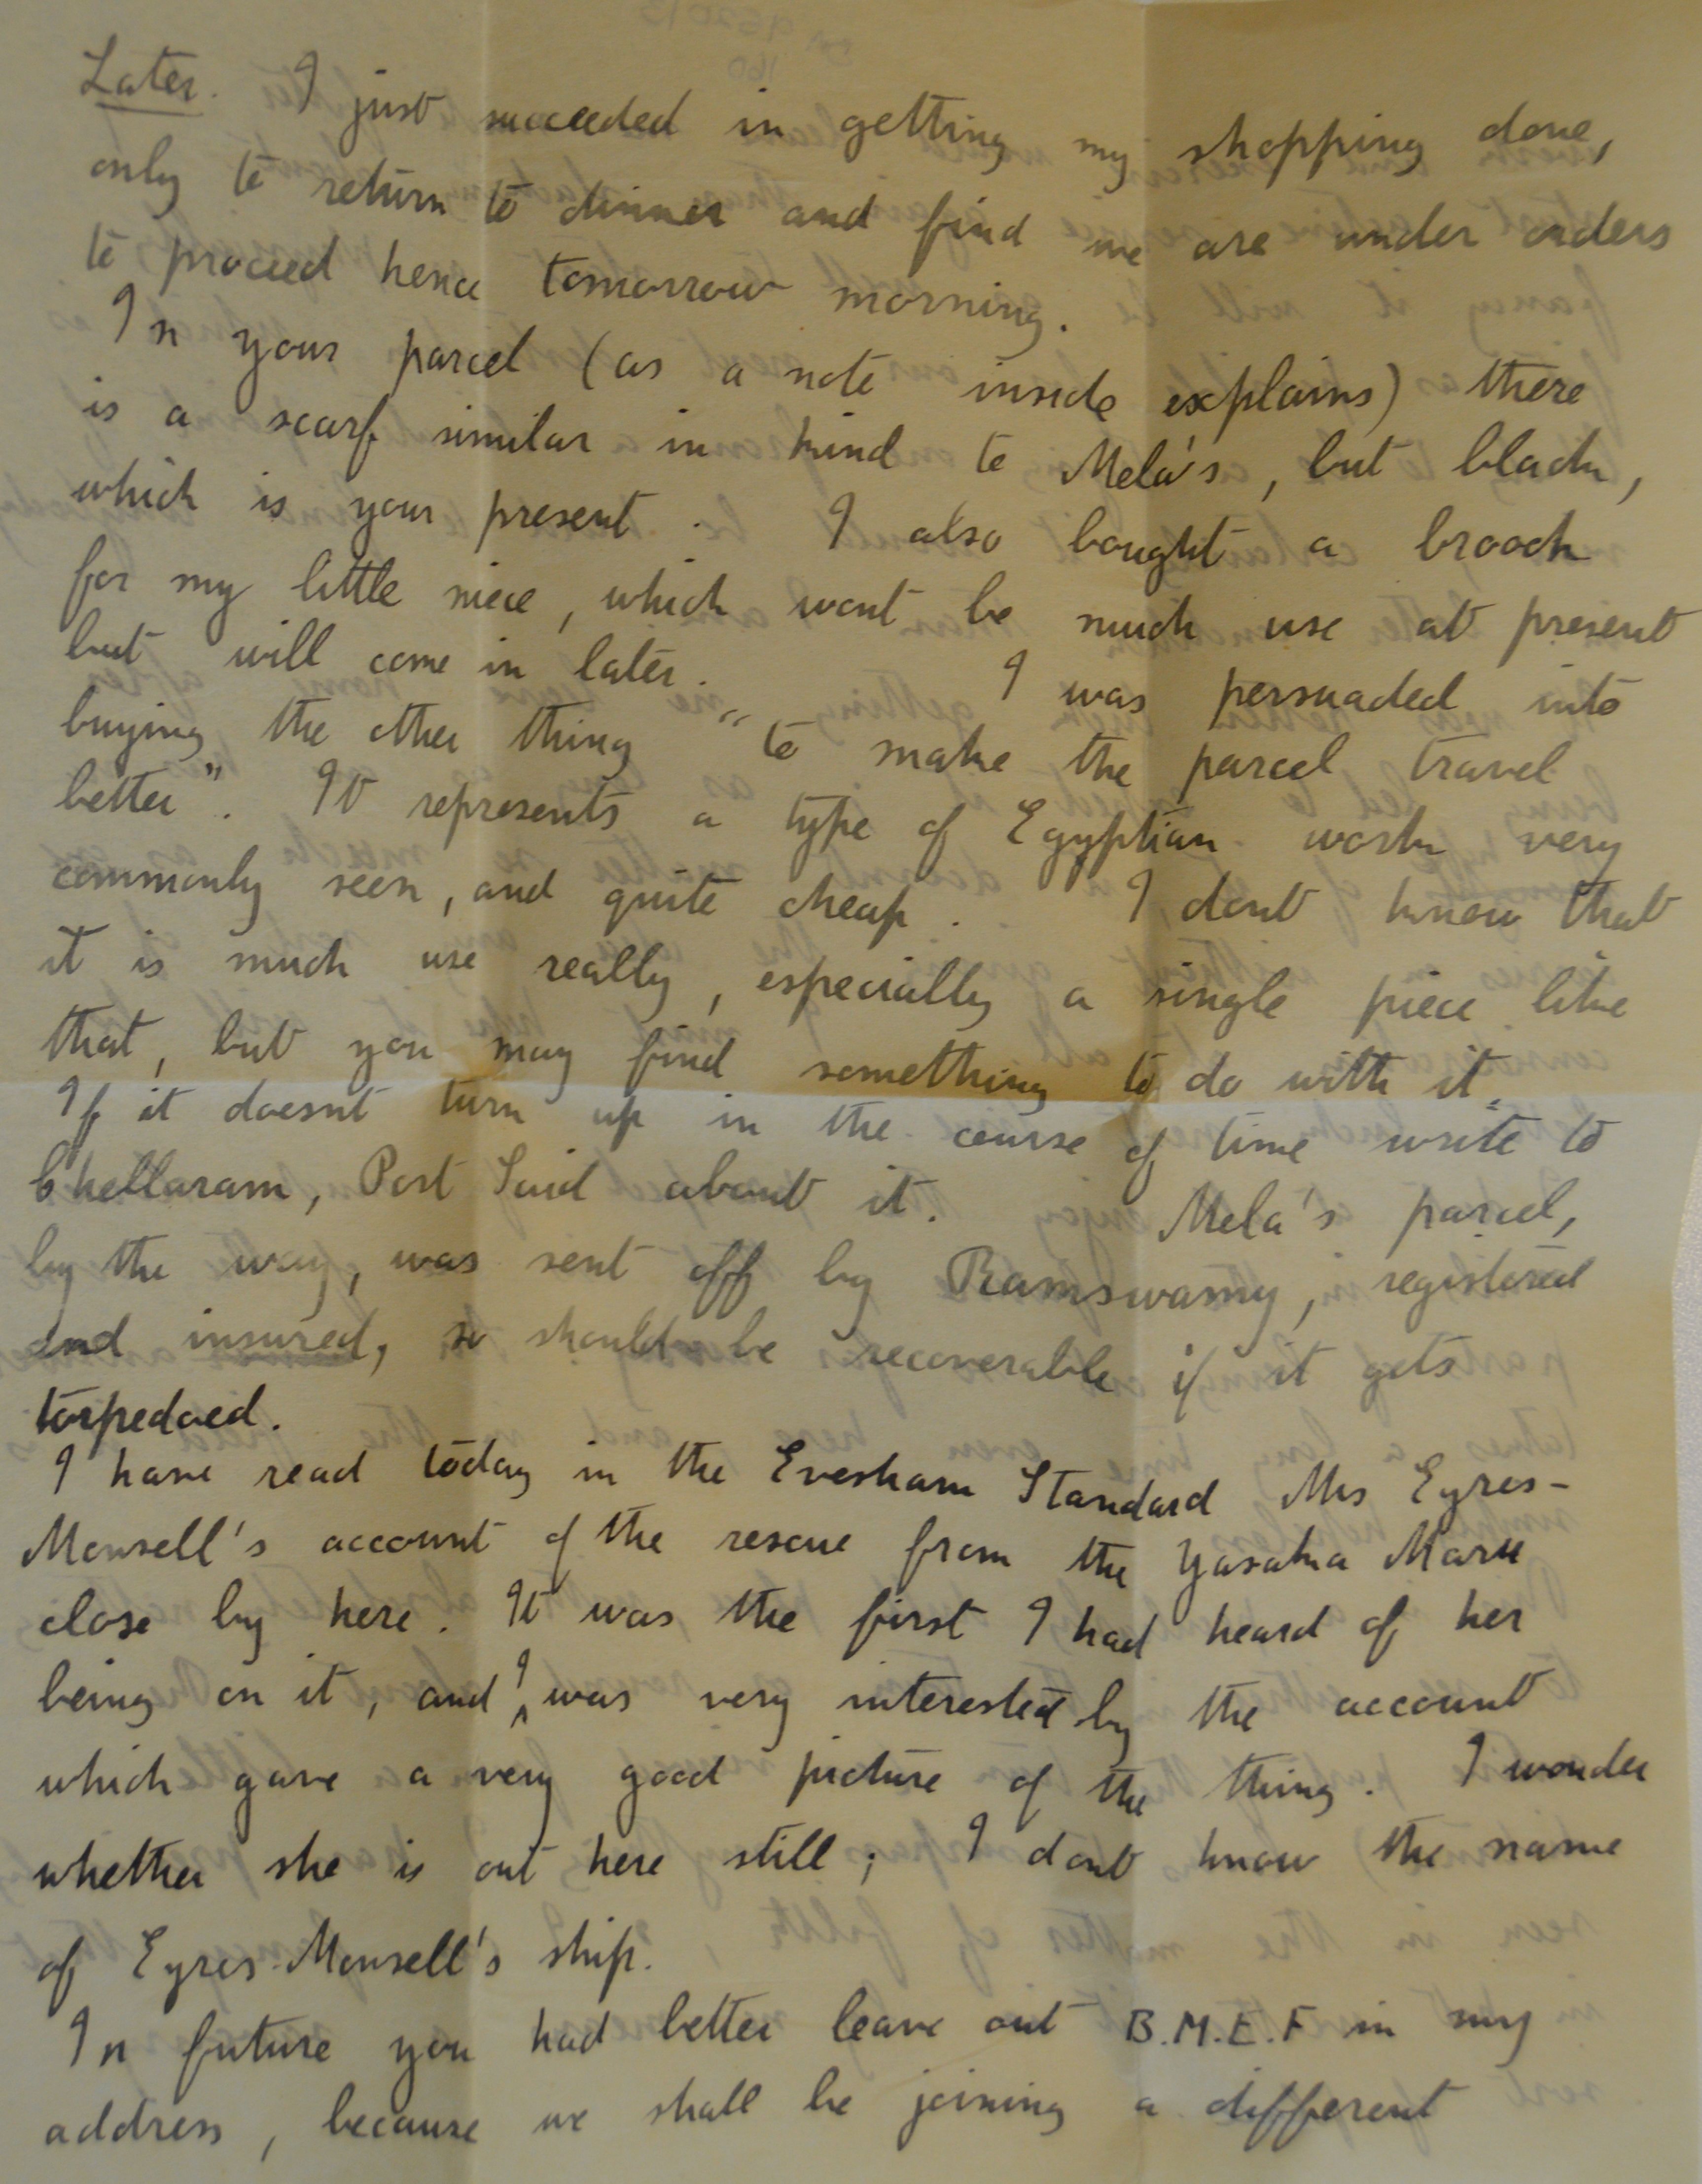 Later. I just succeeded in getting my shopping done,
only to return to dinner and find we are under orders
to proceed hence tomorrow morning.
In your parcel (as a note inside explains) there
is a scarf similar in kind to Mela's, but black,
which is your present. I also bought a brooch
for my little niece, which wont be much use at present
but will come in later. I was persuaded into
buying the other thing "to make the parcel travel
better". It represents a type of Egyptian work very
commonly seen, and quite cheap. I dont know that
it is much use really, especially a single piece like
that, but you may find something to do with it.
If it doesnt turn up in the course of time write to
Chellaram, Port Said about it. Mela's parcel,
by the way, was sent off by Ramswamy, registered
and insured, so should be recoverable if it gets
torpedoed.
I have read today in the Evesham Standard Mrs Eyres-
Monsell's account of the rescue from the Yasaka Maru
close by here. It was the first I had heard of her
being on it, and I was very interested by the account
which gave a very good picture of the thing. I wonder
whether she is out here still; I dont know the name
of Eyres-Monsell's ship.
In future you had better leave out B.M.E.F in my
address, because we shall be joining a different